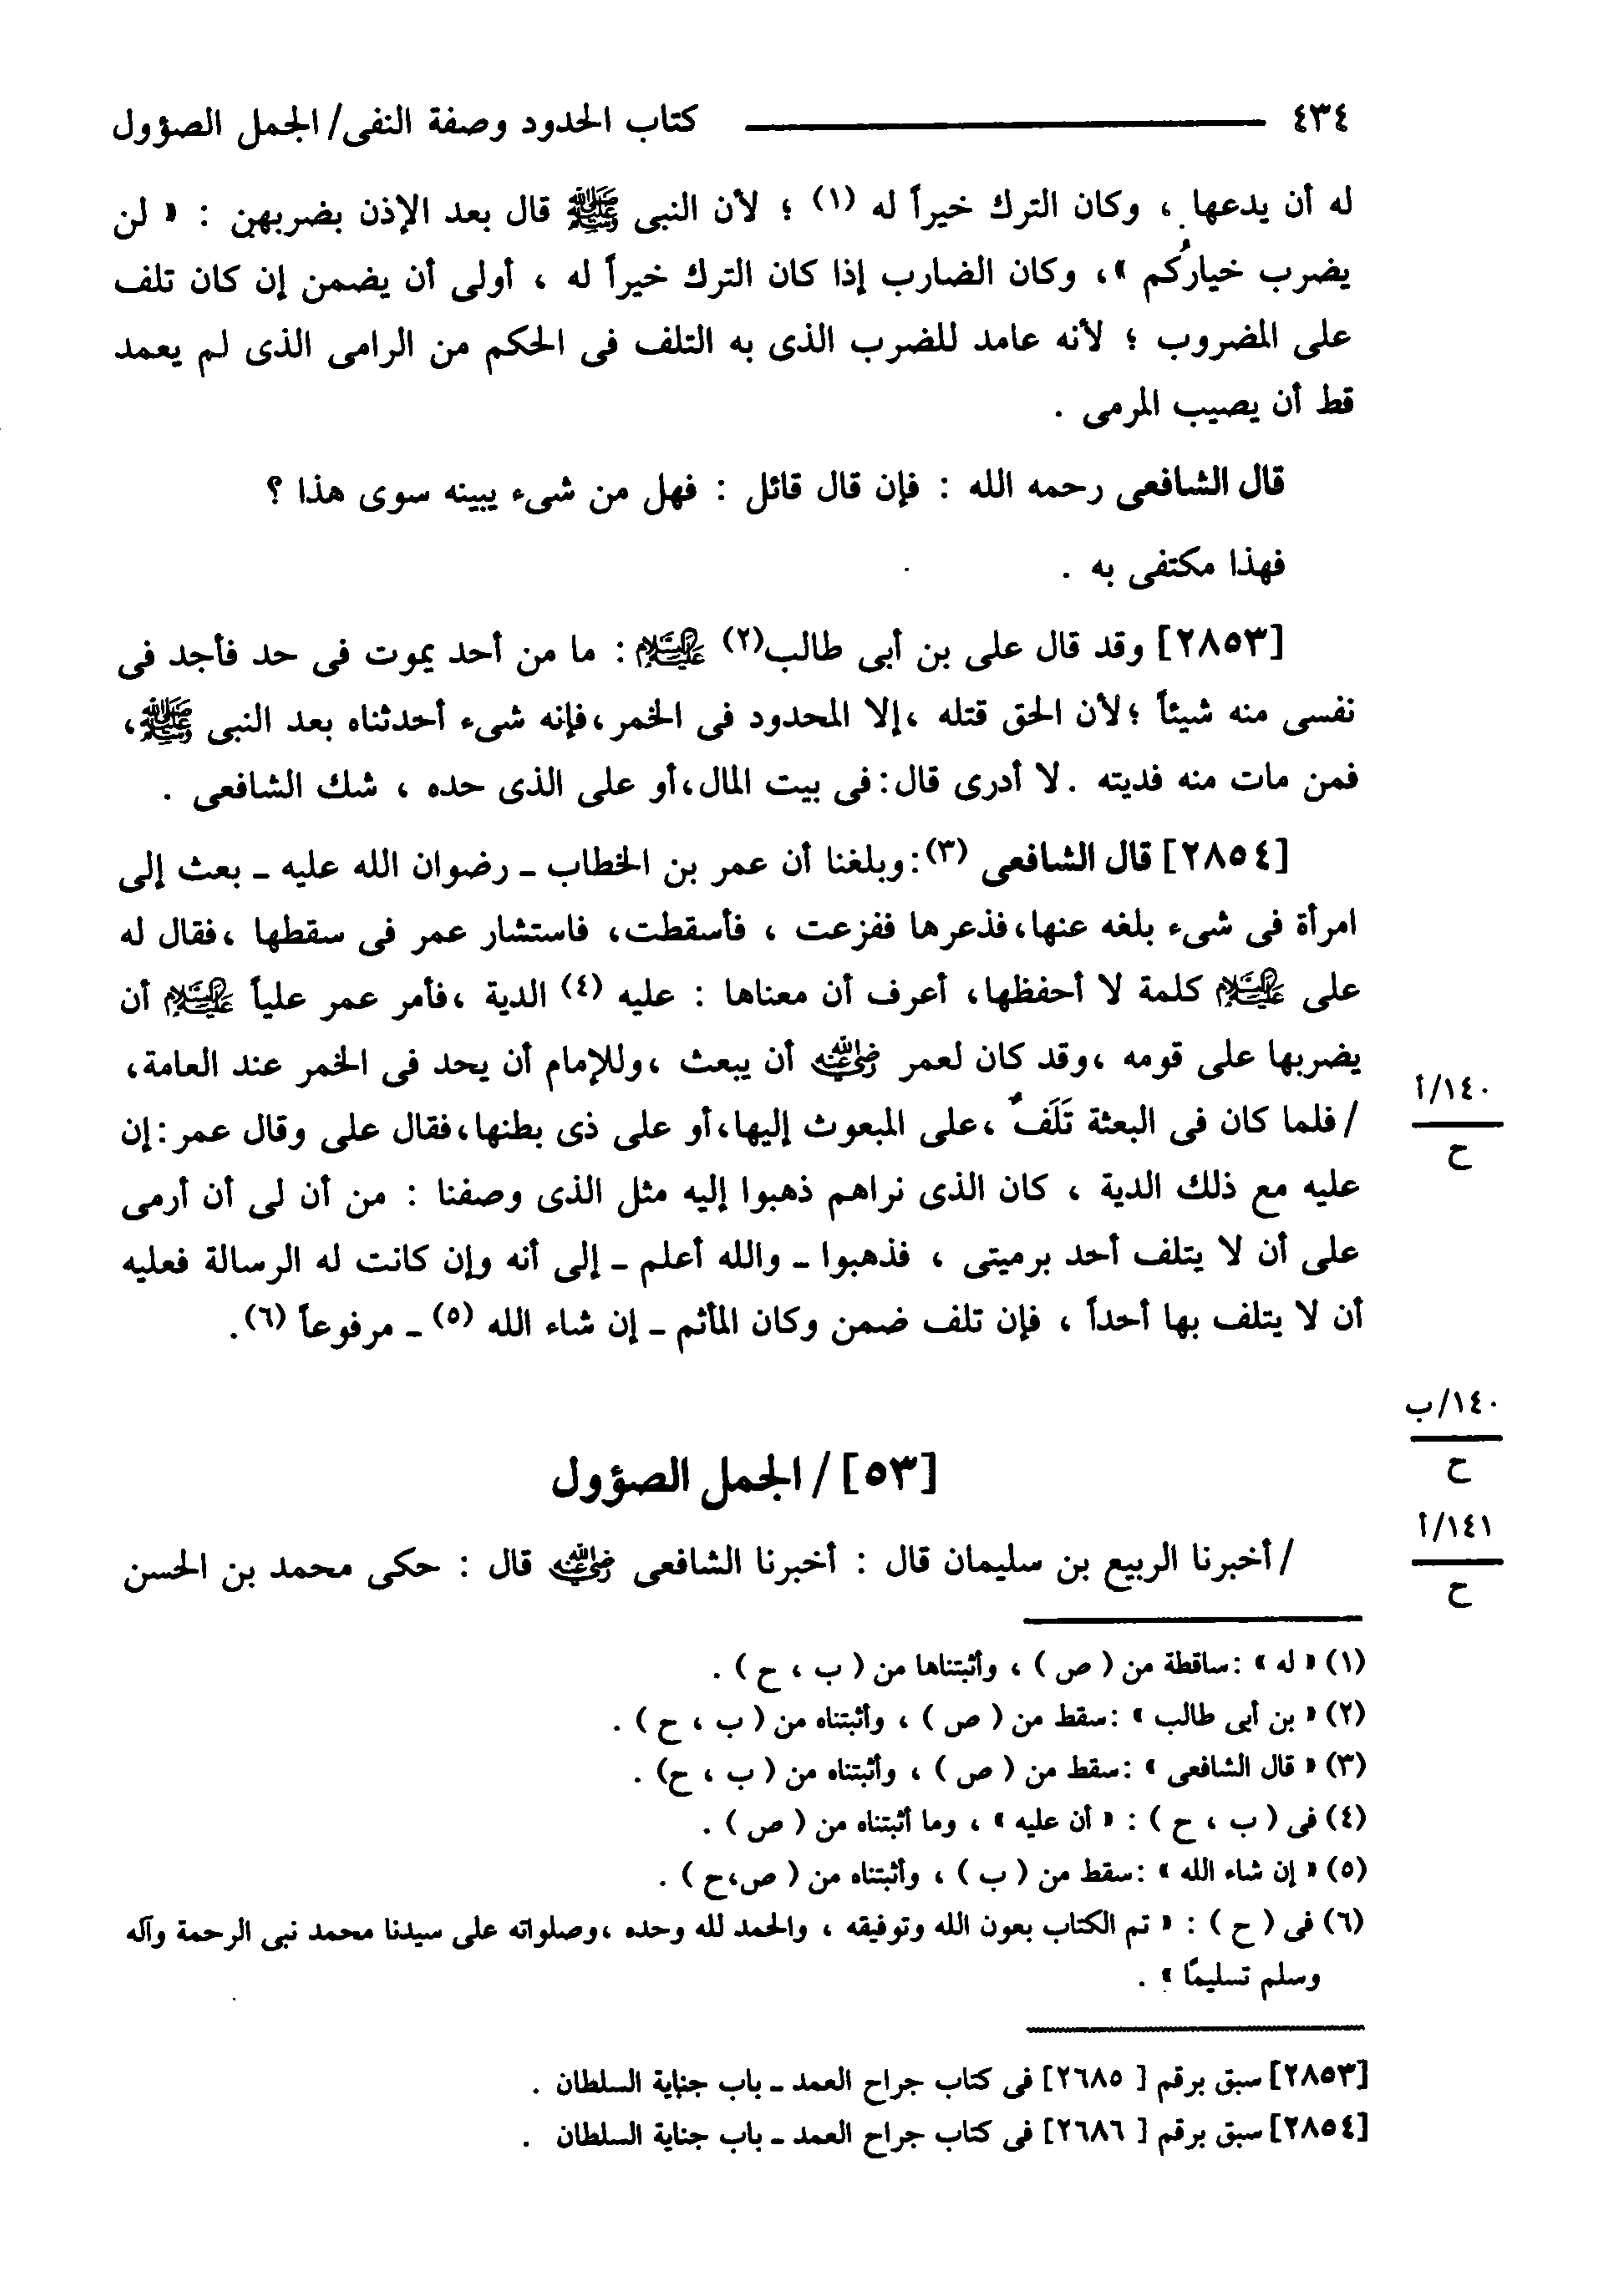 ٤٣٤ ــــــ كتاب الحدود وصفة النفى/ الجمل الصؤول
له أن يدعها ، وكان الترك خيراً له (١) ؛ لأن النبى ﷺ قال بعد الإذن بضربهن : « لن
يضرب خياركُم »، وكان الضارب إذا كان الترك خيراً له ، أولى أن يضمن إن كان تلف
على المضروب ؛ لأنه عامد للضرب الذى به التلف فى الحكم من الرامى الذى لم يعمد
قط أن يصيب المرمى .
قال الشافعى رحمه الله : فإن قال قائل : فهل من شىء يبينه سوى هذا ؟
فهذا مكتفى به .
[٢٨٥٣] وقد قال على بن أبى طالب(٢) عليه السلام : ما من أحد يموت فى حد فأجد فى
نفسى منه شيئاً ؛لأن الحق قتله ،إلا المحدود فى الخمر،فإنه شىء أحدثناه بعد النبى ﷺ،
فمن مات منه فديته .لا أدرى قال:فى بيت المال،أو على الذى حده ، شك الشافعى .
[٢٨٥٤] قال الشافعى (٣):وبلغنا أن عمر بن الخطاب ـ رضوان الله عليه ـ بعث إلى
امرأة فى شىء بلغه عنها،فذعرها ففزعت ، فأسقطت، فاستشار عمر فى سقطها ،فقال له
على عليه السلام كلمة لا أحفظها، أعرف أن معناها : عليه (٤) الدية ،فأمر عمر علياً عليه السلام أن
يضربها على قومه ،وقد كان لعمر رضي الله عنه أن يبعث ،وللإمام أن يحد فى الخمر عند العامة،
١٤٠/أ
ح
/ فلما كان فى البعثة تَلَفٌ ،على المبعوث إليها،أو على ذى بطنها،فقال على وقال عمر:إن
عليه مع ذلك الدية ، كان الذى نراهم ذهبوا إليه مثل الذى وصفنا : من أن لى أن أرمى
على أن لا يتلف أحد برميتى ، فذهبوا ـ والله أعلم ـ إلى أنه وإن كانت له الرسالة فعليه
أن لا يتلف بها أحداً ، فإن تلف ضمن وكان المأثم ـ إن شاء الله (٥) ـ مرفوعاً (٦).
١٤٠/ب
ح
[٥٣] / الجمل الصؤول
١٤١/أ
ح
/ أخبرنا الربيع بن سليمان قال : أخبرنا الشافعى رضي الله عنه قال : حكى محمد بن الحسن
(١) « له » :ساقطة من ( ص ) ، وأثبتناها من ( ب ، ح ) .
(٢) « بن أبى طالب » :سقط من ( ص ) ، وأثبتناه من ( ب ، ح ) .
(٣) « قال الشافعى » :سقط من ( ص ) ، وأثبتناه من ( ب ، ح) .
(٤) فى ( ب ، ح ) : « أن عليه » ، وما أثبتناه من ( ص ) .
(٥) « إن شاء الله » :سقط من ( ب ) ، وأثبتناه من ( ص،ح ) .
(٦) فى ( ح ) : « تم الكتاب بعون الله وتوفيقه ، والحمد لله وحده ،وصلواته على سيدنا محمد نبى الرحمة وآله
وسلم تسليمًا » .
[٢٨٥٣] سبق برقم [ ٢٦٨٥] فى كتاب جراح العمد ـ باب جناية السلطان .
[٢٨٥٤] سبق برقم [ ٢٦٨٦] فى كتاب جراح العمد ـ باب جناية السلطان .